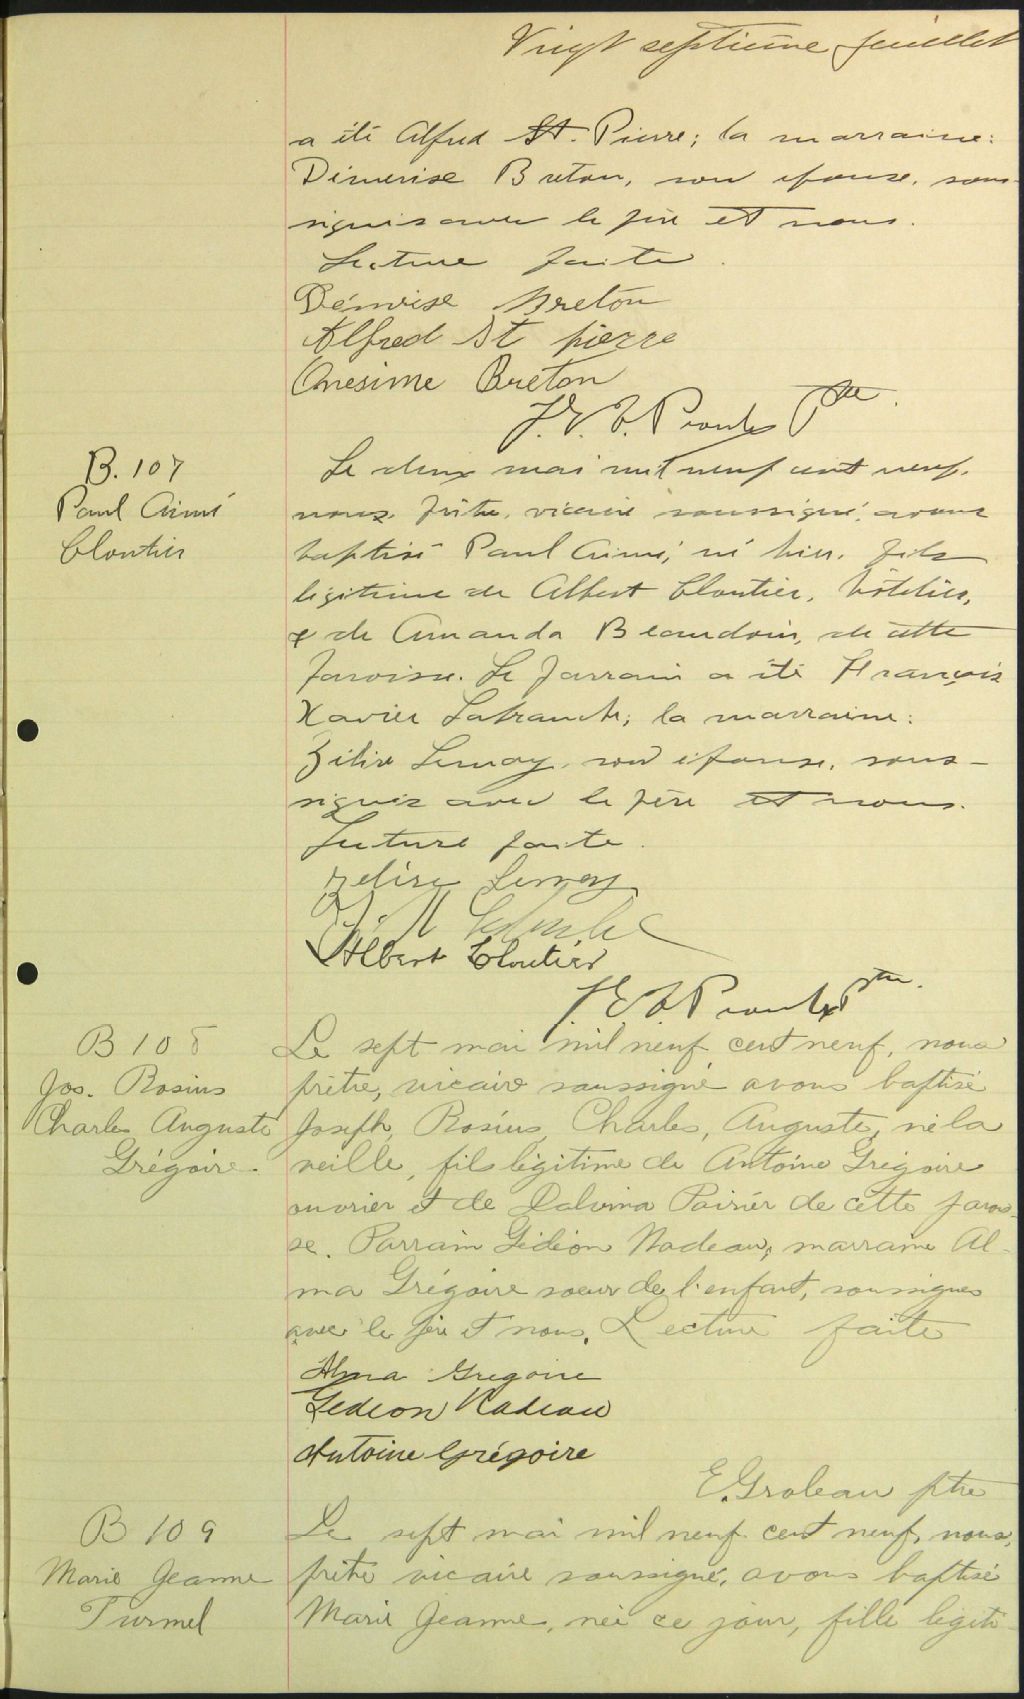 Vingt septième feuillet
a été Alfred St. Pierre; la marraine:
Démerise Breton, son épouse, sous-
signés avec le père et nous.
Lecture faite.
Démerise Breton
Alfred St pierre
Onesime Breton
J. E. Proulx Ptre.
B. 107
Paul Aimé
Cloutier
Le deux mai mil neuf cent neuf,
nous prêtre, vicaire soussigné, avons
baptisé Paul Aimé, né hier, fils
légitime de Albert Cloutier, hôtelier,
& de Amanda Beaudoin, de cette
paroisse. Le parrain a été François
Xavier Labranche; la marraine:
Zélire Lemay, son épouse, sous-
signés avec le père et nous.
Lecture faite.
Zelire Lemay
Albert Cloutier
Proulx Ptre.
B 108
Jos. Rosius
Charles Auguste
Grégoire.
Le sept mai mil neuf cent neuf, nous
prêtre, vicaire soussigné avons baptisé
Joseph, Rosius, Charles, Auguste, né la
veille, fils légitime de Antoine Grégoire
ouvrier et de Dalvina Poirier de cette parois-
se. Parrain Gédéon Nadeau, marraine Al-
ma Grégoire soeur de l'enfant, soussignés
avec le père et nous. Lecture faite
Alma Gregoire
Gedeon Nadeau
Antoine Grégoire
E. Groleau ptre
B 109
Marie Jeanne
Turmel
Le sept mai mil neuf cent neuf, nous,
prêtre vicaire soussigné, avons baptisé
Marie Jeanne, née ce jour, fille légiti-